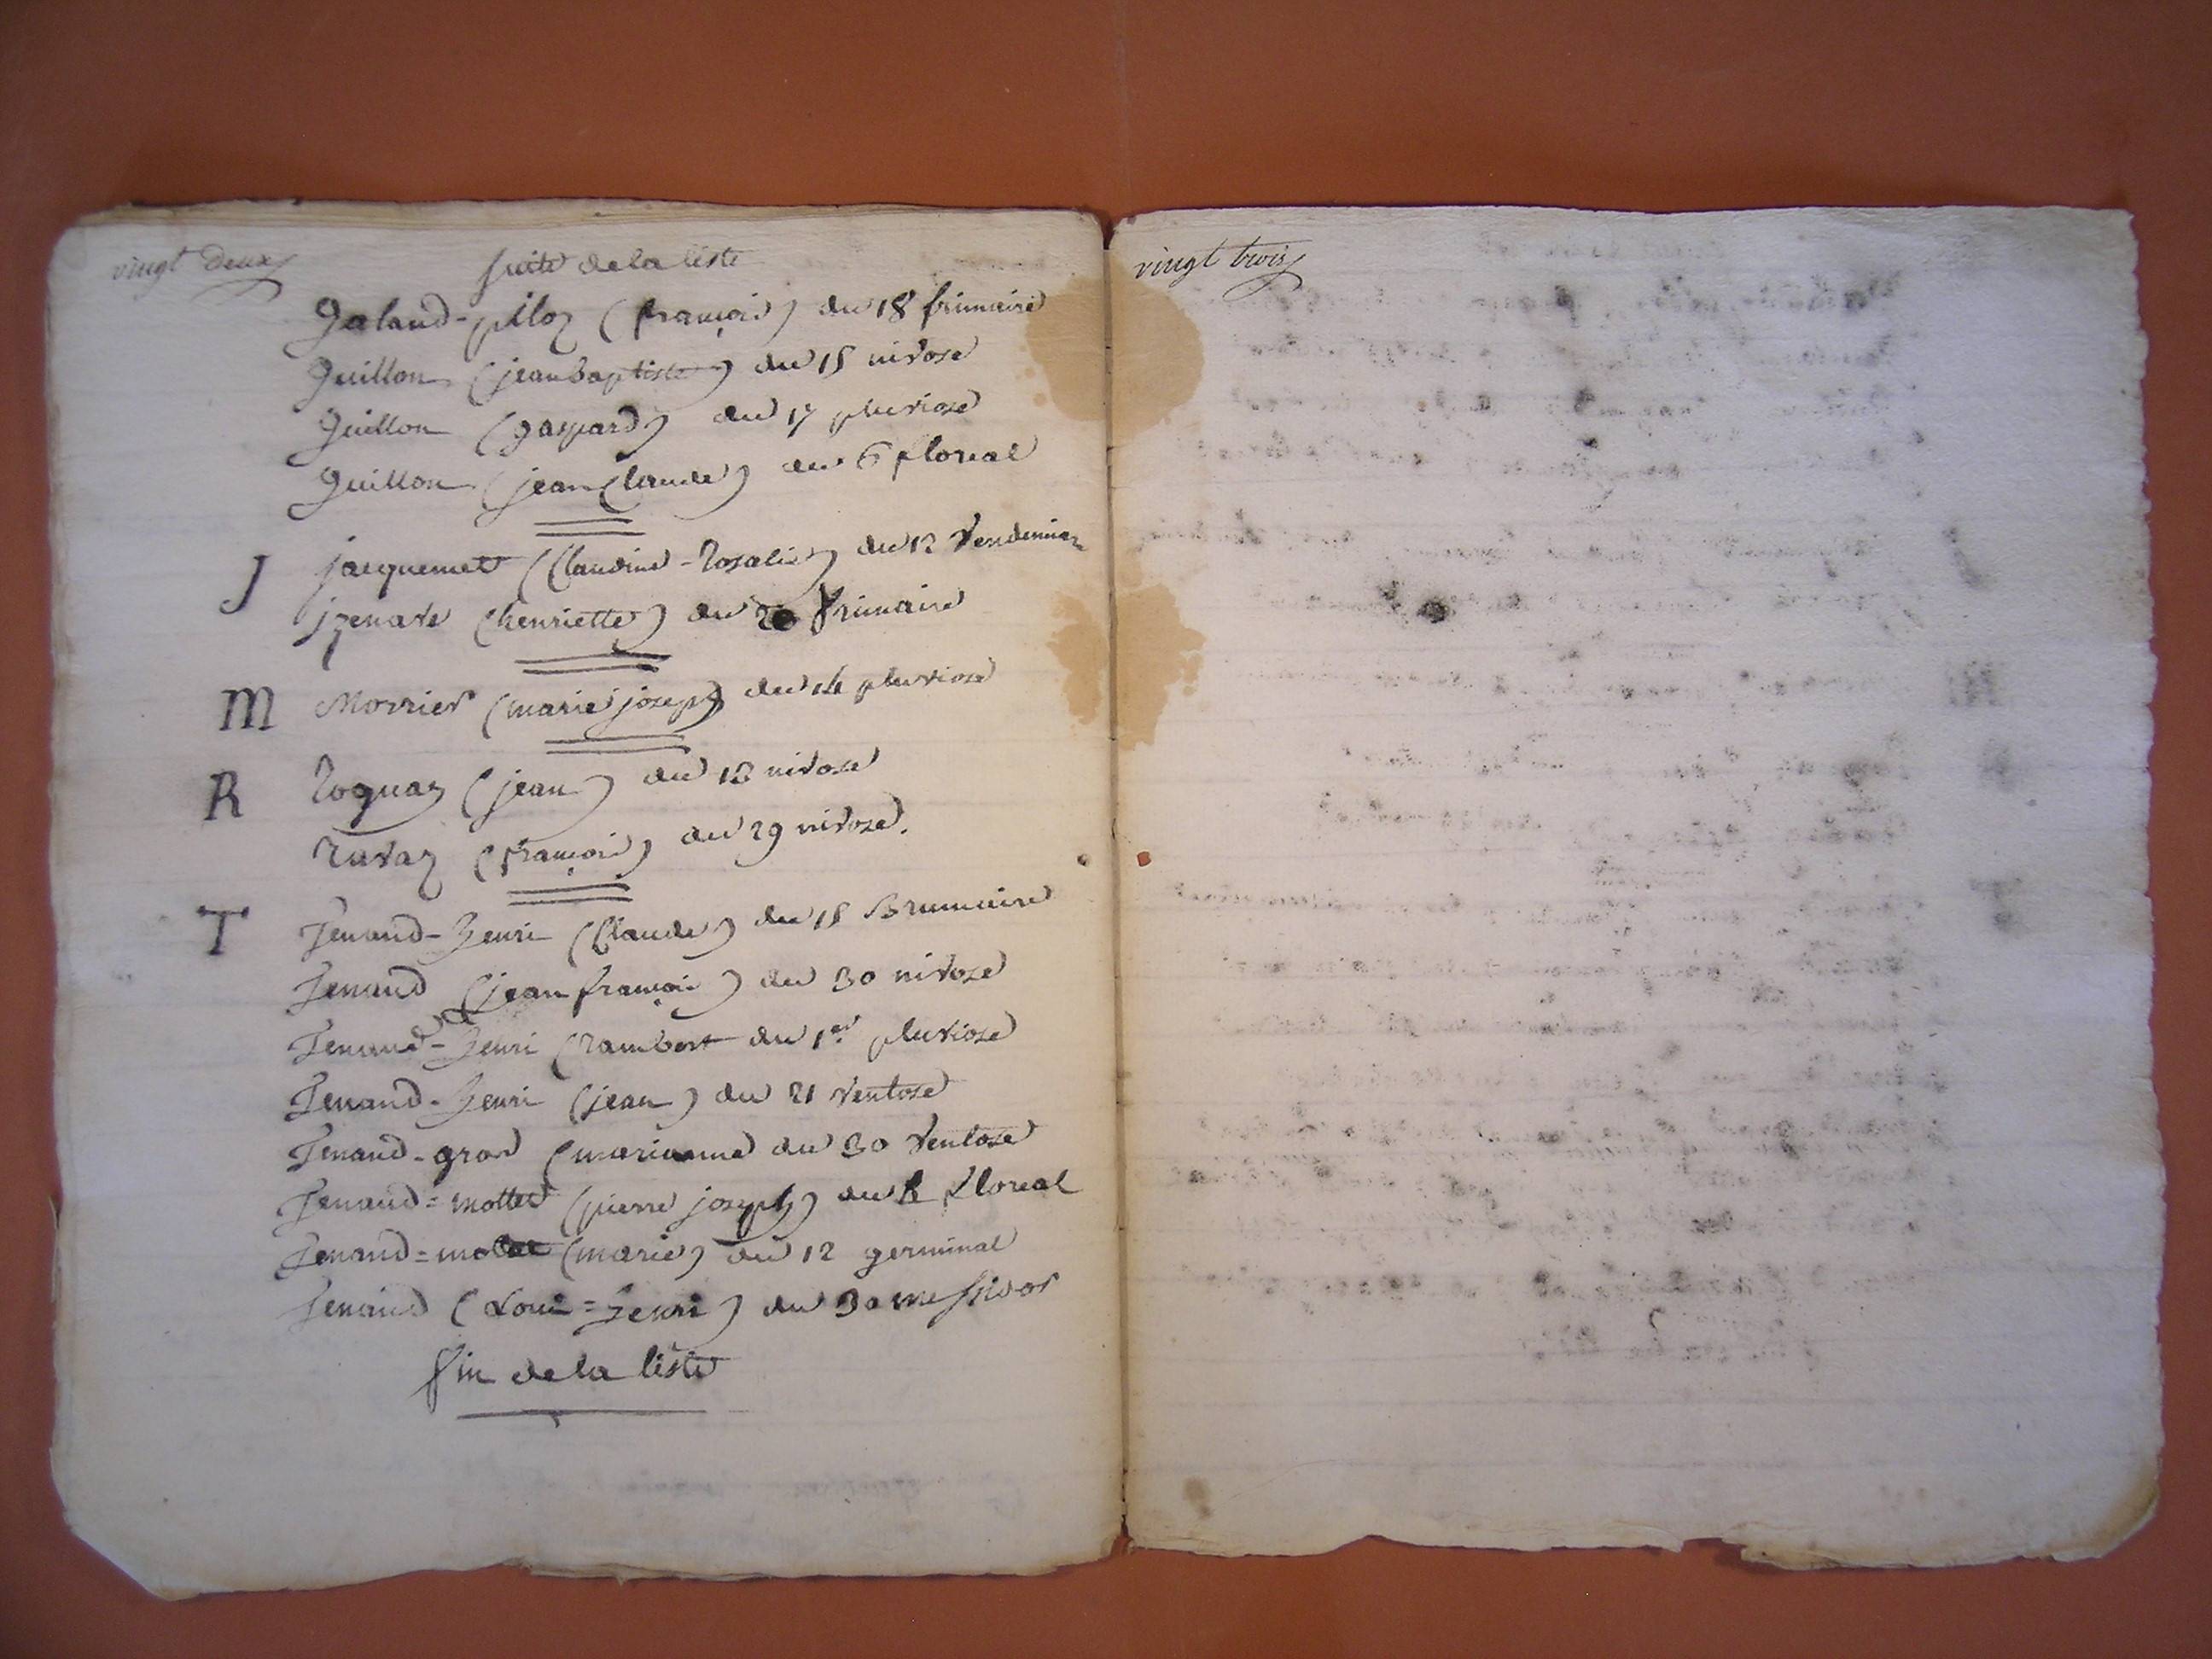 vingt deux
suite de la liste
Galand-piloz (françois) du 18 frimaire
Guillon (jean baptiste) du 15 nivose
Guillon (gaspard) du 17 pluviose
Guillon (jean Claude) du 6 floreal
J
jacquemet (Claudine-Rosalie) du 12 Vendemiar
jzenave (henriette) du frimaire
M
Morrier (marie joseph du 14 pluviose
R
Roguaz (jean) du 13 nivose
Ravaz (françois) du 29 nivose.
T
Tenand-henri (Claude) du 15 Brumaire
Tenand (jean françois) du 30 nivose
Tenand-henri (rambert du 1er pluviose
Tenand-henri (jean) du 21 Ventose
Tenand-gros (marianne du 30 Ventose
Tenand=mottet (pierre joseph) du floreal
Tenand= (marie) du 12 germinal
Tenand (Louis=henri) du 30 messidor
fin de la liste
vingt trois